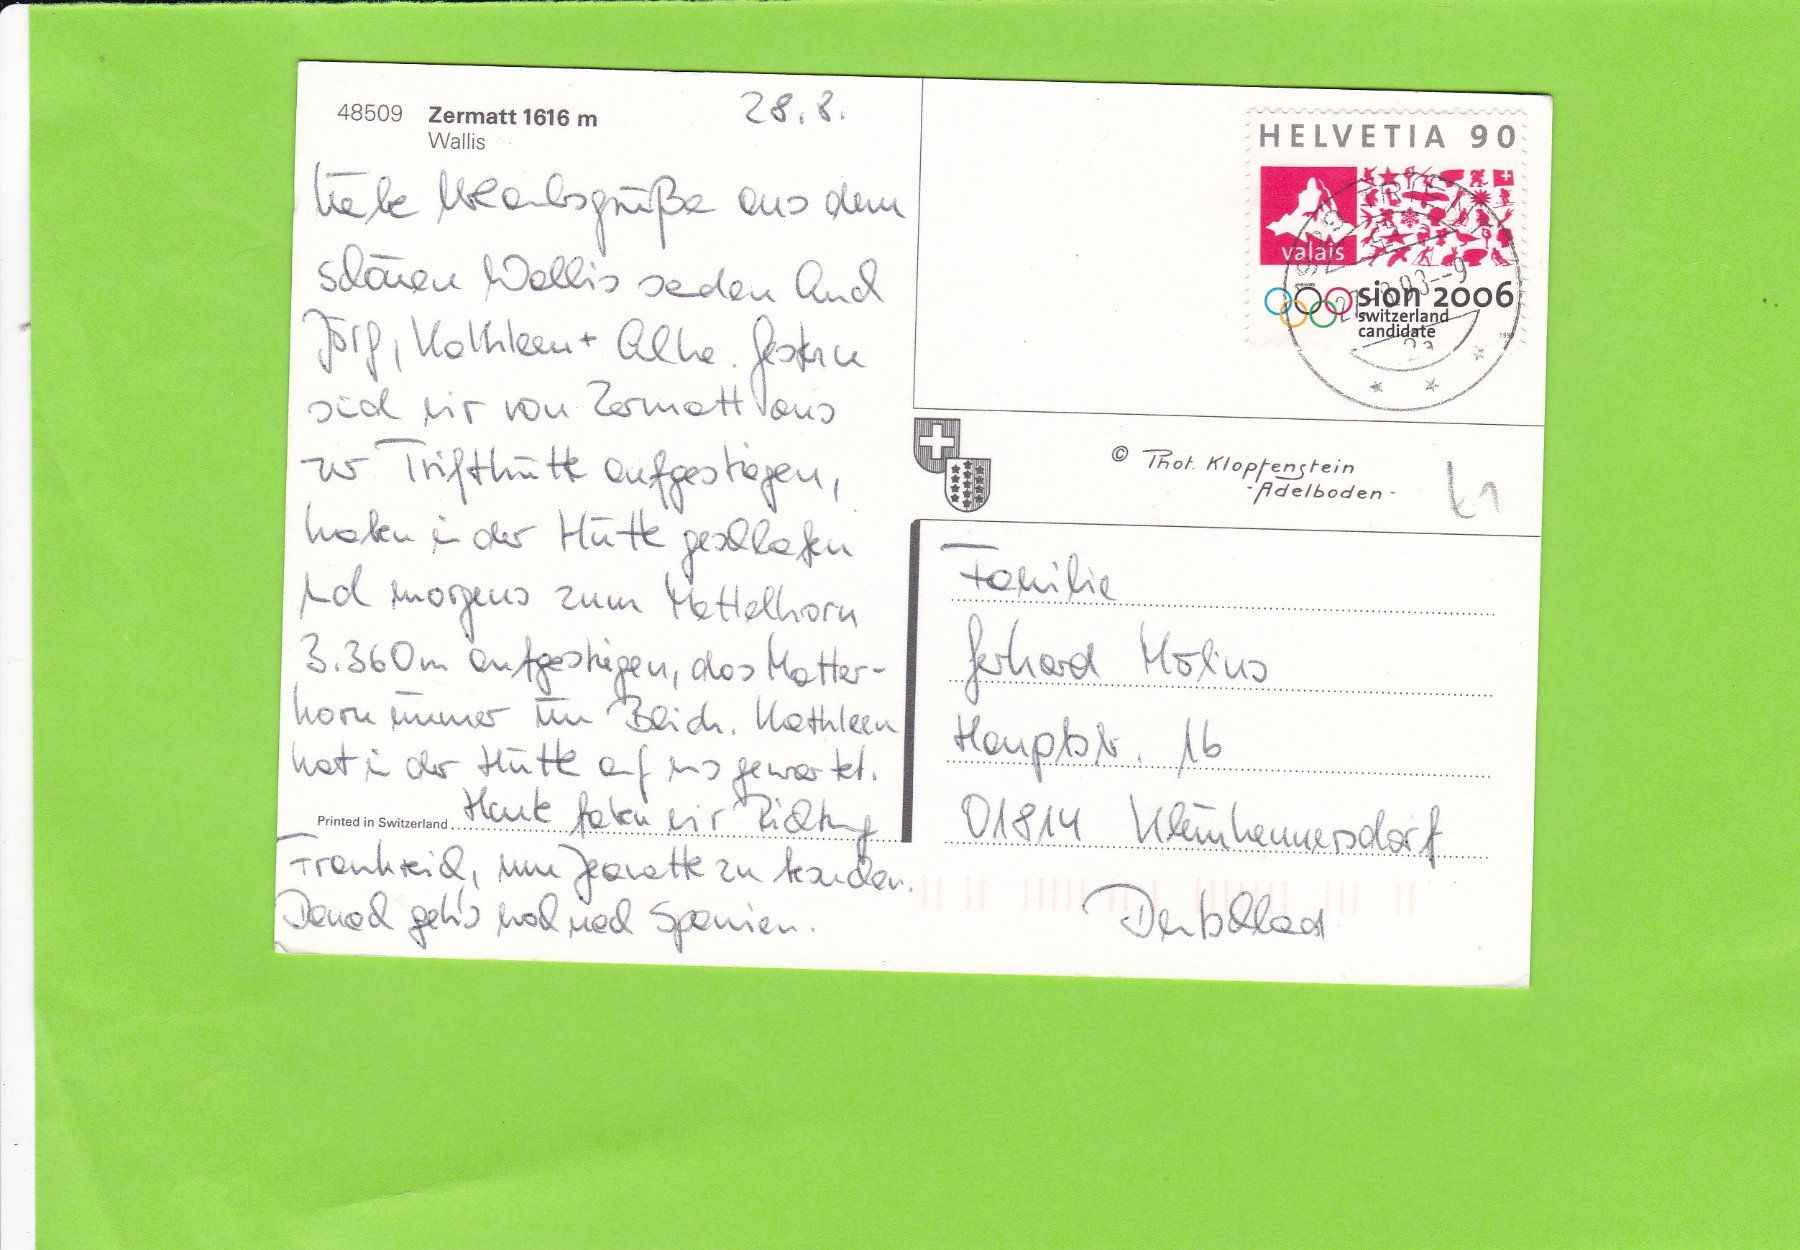 48509 Zermatt 1616 m
Wallis
28.8.
Liebe Urlaubsgrüße aus dem
schönen Wallis senden Euch
Jörg, Kathleen + Elke. Gestern
sind wir von Zermatt aus
zur Trifthütte aufgestiegen,
haben in der Hütte geschlafen
und morgens zum Mettelhorn
3.360m aufgestiegen, das Matter-
horn immer im Blick. Kathleen
hat in der Hütte auf uns gewartet.
Heute fahren wir Richtung
Printed in Switzerland
Frankreich, um Jeanette zu besuchen.
Danach geht's noch nach Spanien.
HELVETIA 90
valais
sion 2006
switzerland
candidate
© Phot. Klopfenstein
- Adelboden -
Familie
Gerhard
Hauptstr. 16
01814 Kleinhennersdorf
Deutschland